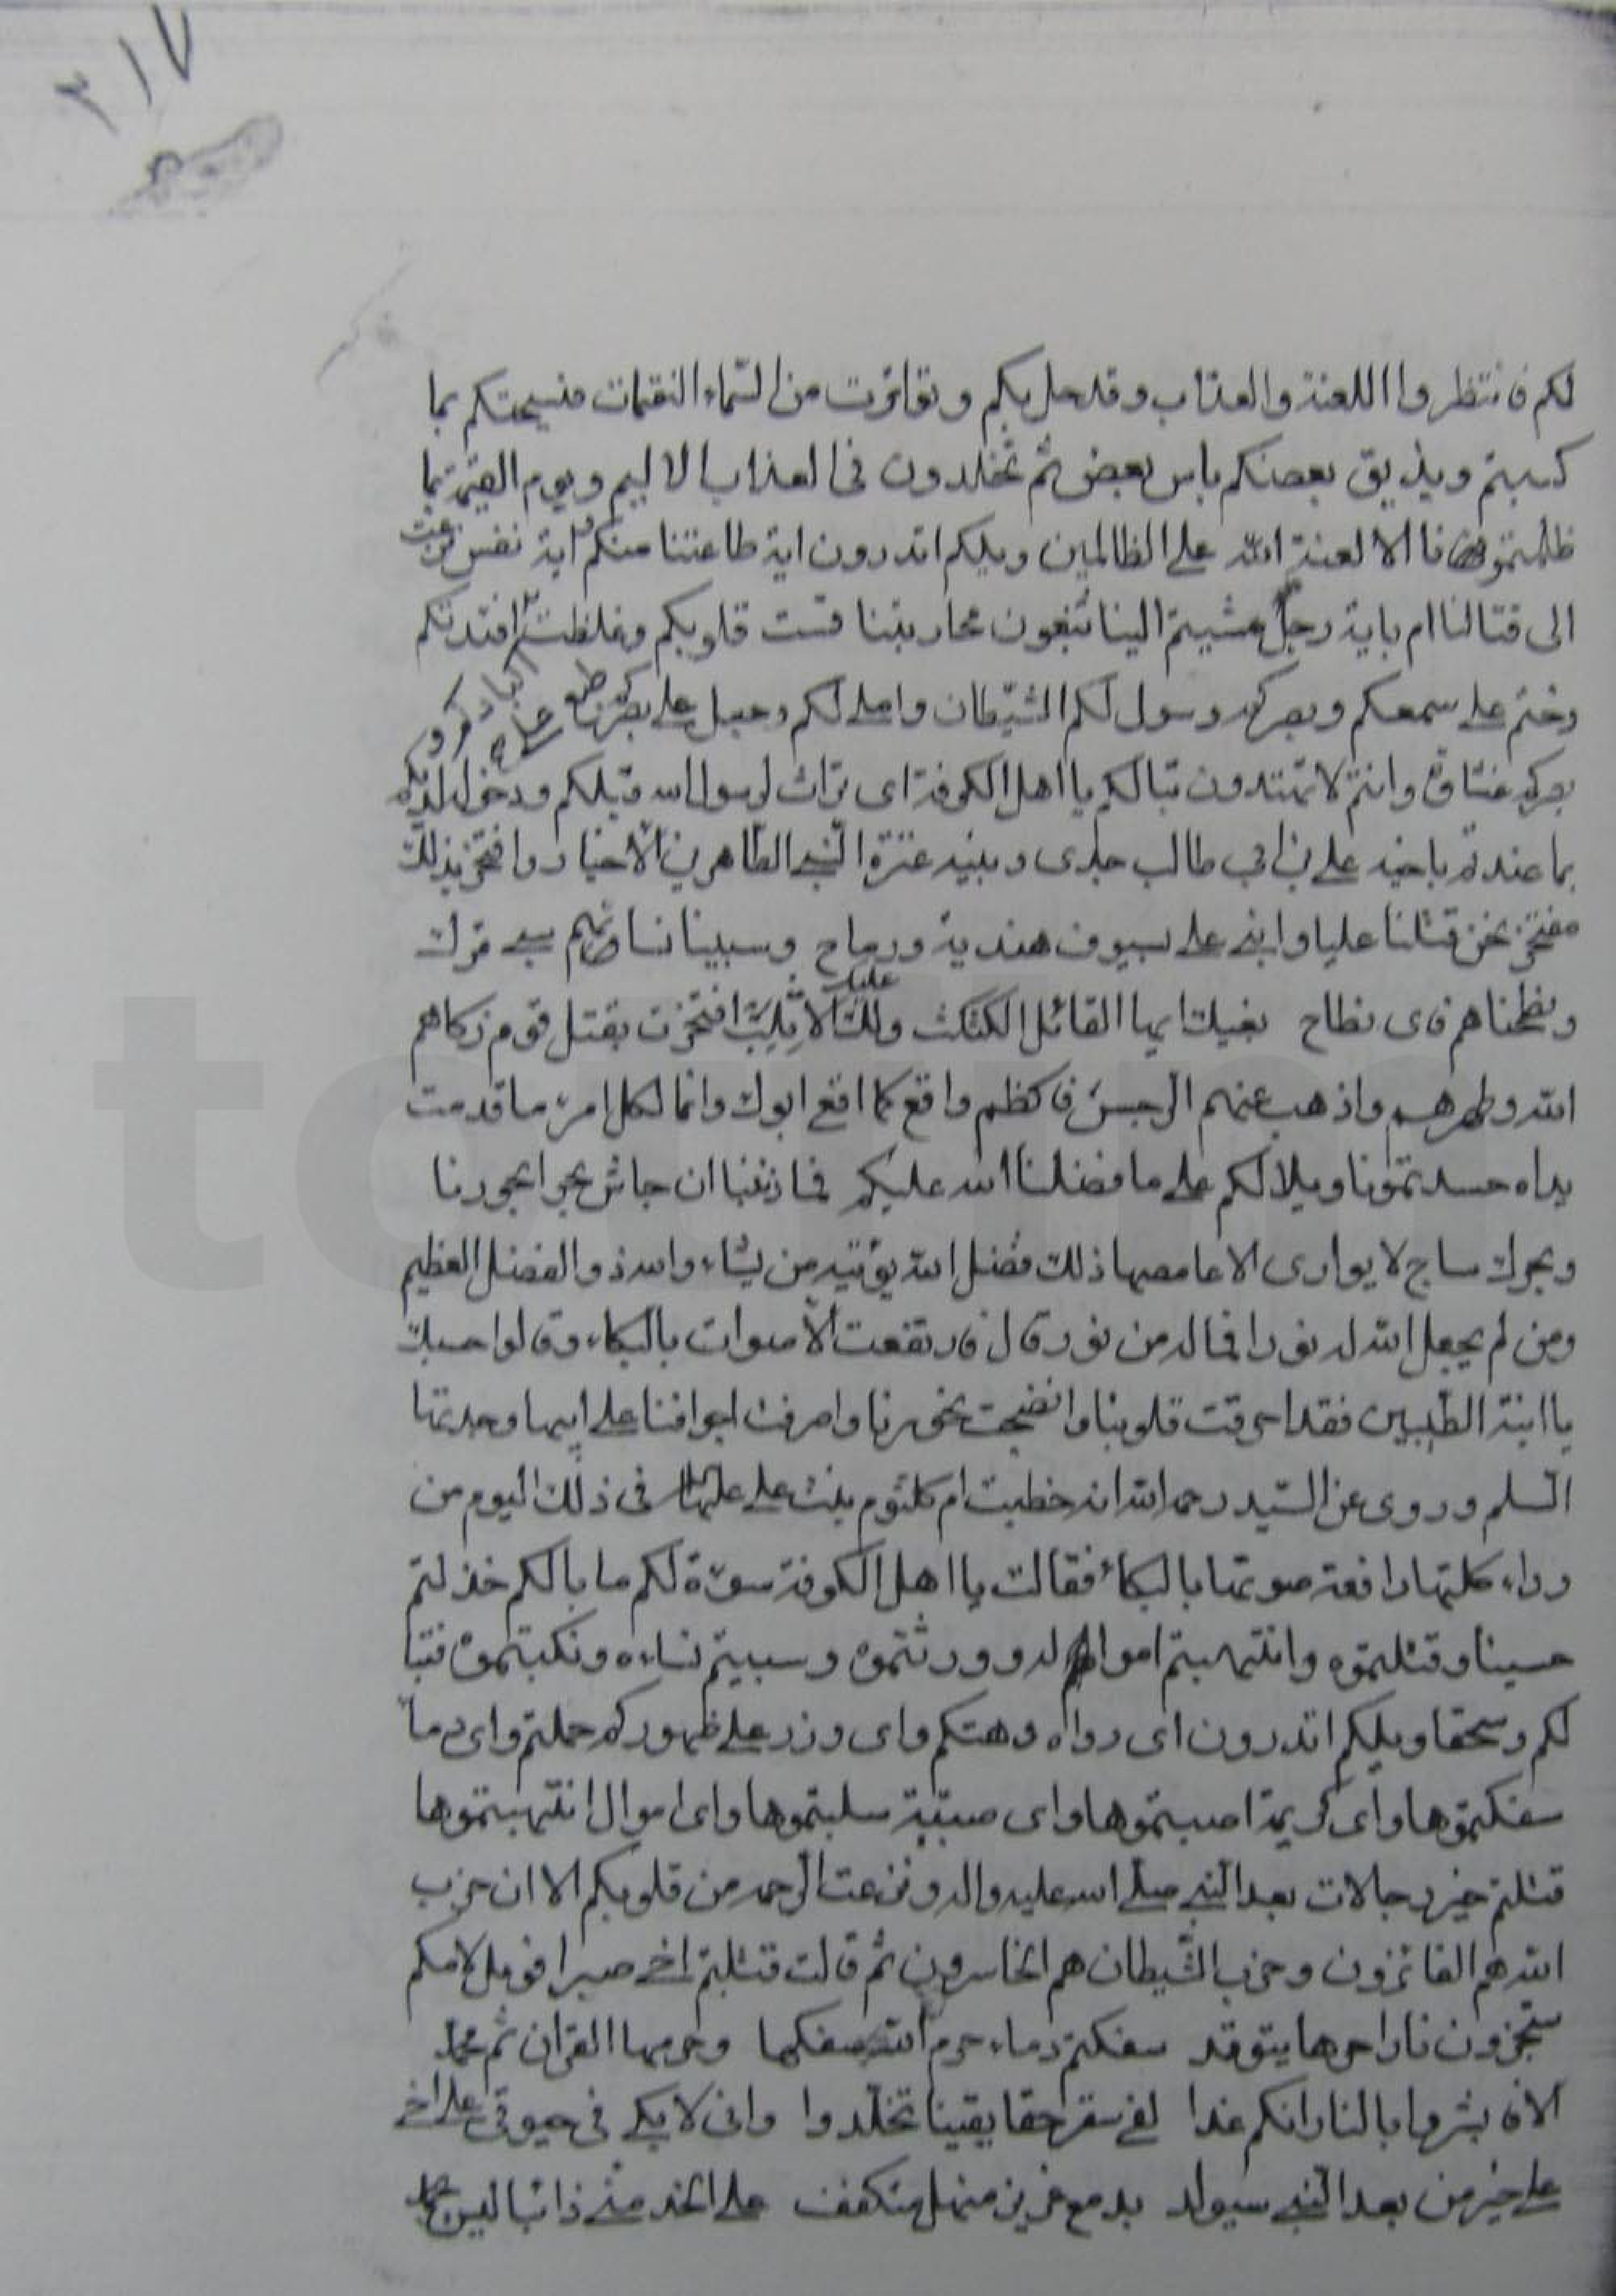 ٣١٧
لكم فانتظروا اللعنة والعذاب وقد حل بكم وتواترت من السماء النقمات فيسحتكم بما
كسبتم ويذيق بعضكم باس بعض ثم تخلدون فى العذاب الاليم ويوم القيمة بما
ظلمتمونا الا لعنة الله على الظالمين ويلكم اتدرون اية طاعتنا منكم اية نفس نزعت
الى قتالنا ام باية رجل مشيتم الينا تبغون محاربتنا قست قلوبكم وغلظت افئدتكم
وختم على سمعكم وبصركم وسول لكم الشيطان واملى لكم وجعل على
بصركم غشاوة وانتم لا تهتدون تبا لكم يا اهل الكوفة اى تراث لرسول الله قبلكم ودخول لديكم
بما عندتم باخيه على بن ابى طالب جدى وبنيه عترة النبى الطاهرين الاخيار وافتخر بذلك
مفتخر نحن قتلنا عليا وابنى على بسيوف هندية ورماح وسبينا نسائهم سبى ترك
ونطحناهم فاى نطاح بفيك ايها القائل الكثكث ولك الاثلب افتخرت بقتل قوم زكاهم
الله وطهرهم واذهب عنهم الرجس فاكظم واقع كما اقعى ابوك وانما لكل امرء ما قدمت
يداه حسدتمونا ويلا لكم على ما فضلنا الله عليكم فما ذنبنا ان جاش بحرا بحورنا
وبحرك ساج لا يوارى الا عامصها ذلك فضل الله يؤتيه من يشاء والله ذو الفضل العظيم
ومن لم يجعل الله له نورا فما له من نور قال فارتفعت الاصوات بالبكاء وقالوا حسبك
يا ابنة الطيبين فقد احرقت قلوبنا وانضجت نحورنا واضرمت اجوافنا على ابيها وجدتها
السلم وروى عن السيد رحمه الله انه خطبت ام كلثوم بنت على عليهما فى ذلك اليوم من
وراء كلتها رافعة صوتها بالبكاء فقالت يا اهل الكوفة سوءة لكم ما بالكم خذلتم
حسينا وقتلتموه وانتهبتم امواله وورثتموه وسبيتم نساءه ونكبتموه فتبا
لكم وسحقا ويلكم اتدرون اى دواه دهتكم واى وزر على ظهوركم حملتم واى دماء
سفكتموها واى كريمة اصبتموها واى صبية سلبتموها واى اموال انتهبتموها
قتلتم خير رجالات بعد النبى صلى الله عليه واله ونزعت الرحمة من قلوبكم الا ان حزب
الله هم الفائزون وحزب الشيطان هم الخاسرون ثم قالت قتلتم اخى صبرا فويل لامكم
ستجزون نارا حرها يتوقد سفكتم دماء حرم الله سفكها وحرمها القران ثم محمد
الا فابشروا بالنار انكم غدا لفى سقر حقا يقينا تخلدوا وانى لابكى فى حيوتى على اخى
على خير من بعد النبى سيولد بدمع غزير منهل متكفف على الخد منى ذائبا ليس يجمد